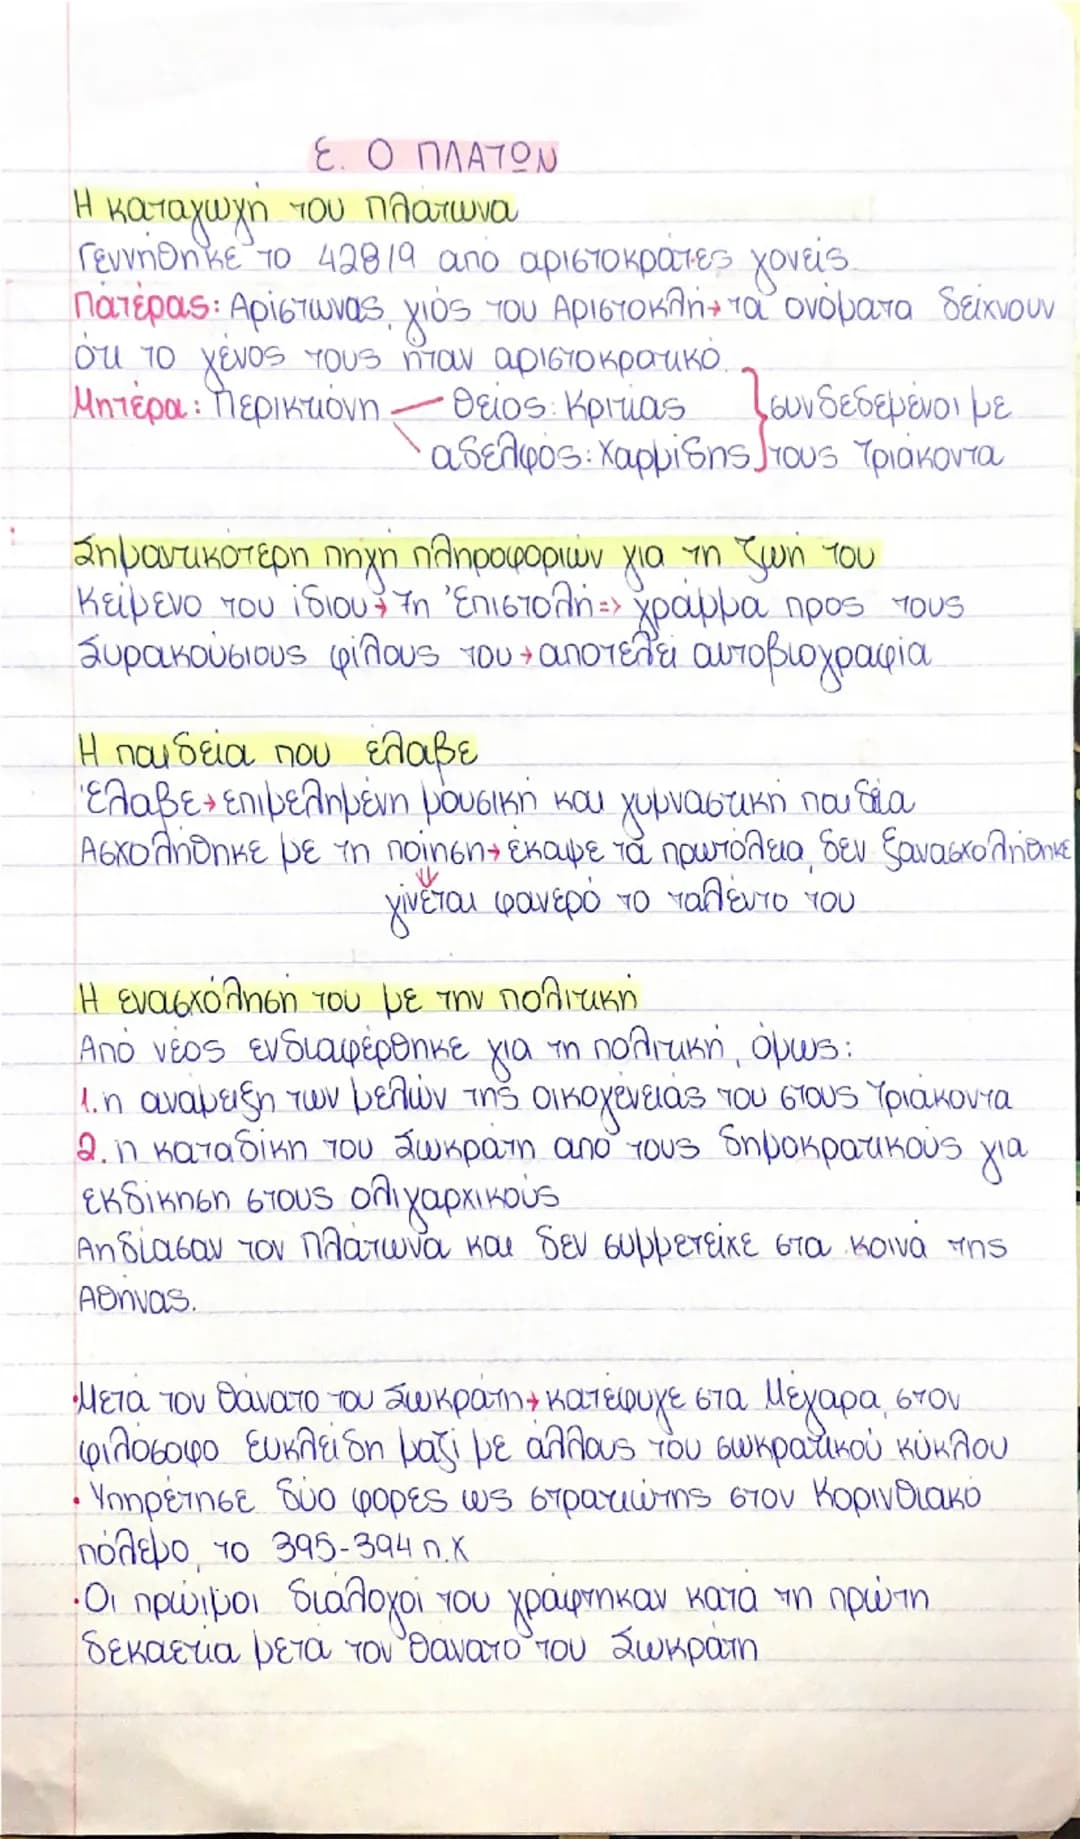 Ε. Ο ΠΛΑΤΩΝ
Η καταγωγή του Πλάτωνα
Γεννήθηκε το 428/9 από αριστοκράτες γονείς.
Πατέρας: Αρίστωνας, γιός του Αριστοκλή→ τα ονόματα δείχνουν
ότι το γένος τους ήταν αριστοκρατικό.
Μητέρα: Περικτιόνη — θείος: Κριτίας } συνδεδεμένοι με
αδελφός: Χαρμίδης τους Τριάκοντα
Σημαντικότερη πηγή πληροφοριών για τη ζωή του
Κείμενο του ίδιου→ 7η Έπιστολή=> γράμμα προς τους
Συρακούσιους φίλους του→ αποτελεί αυτοβιογραφία
Η παιδεία που έλαβε
Έλαβε→ επιμελημένη μουσική και γυμναστική παιδεία
Ασχολήθηκε με τη ποίηση→ έκαψε τα πρωτόλεια, δεν ξανασχολήθηκε
γίνεται φανερό το ταλέντο του
Η ενασχόλησή του με την πολιτική
Από νέος ενδιαφέρθηκε για τη πολιτική, όμως:
1. η ανάμειξη των μελών της οικογένειάς του στους Τριάκοντα
2. η καταδίκη του Σωκράτη από τους δημοκρατικούς για
εκδίκηση στους ολιγαρχικούς
Αηδίασαν τον Πλάτωνα και δεν συμμετείχε στα κοινά της
Αθήνας.
•Μετά τον θάνατο του Σωκράτη→ κατέφυγε στα Μέγαρα, στον
φιλόσοφο Ευκλείδη μαζί με άλλους του σωκρατικού κύκλου
• Υπηρέτησε δύο φορές ως στρατιώτης στον Κορινθιακό
πόλεμο, το 395-394 π.Χ
•Οι πρώιμοι διάλογοί του γράφτηκαν κατά τη πρώτη
δεκαετία μετά τον θάνατο του Σωκράτη